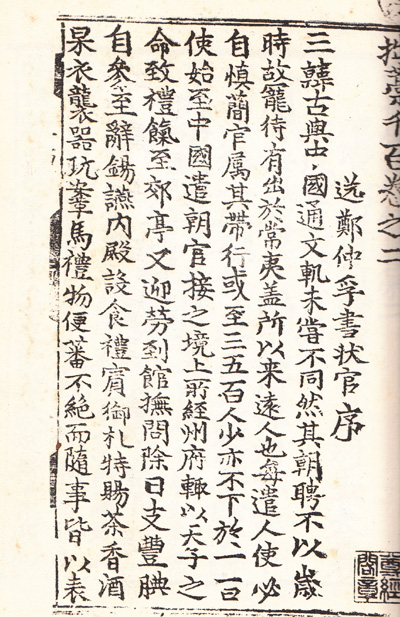 拙藁千百卷之二
送鄭仲孚書狀官序
三韓古與中國通文軌未嘗不同然其朝聘不以歲
時故籠待有出於常夷盖所以来遠人也每遣人使必
自慎簡官属其帶行或至三五百人少亦不下於一百
使始至中國遣朝官接之境上所經州府輒以天子之
命致禮餼至郊亭又迎勞到館撫問除日支豐腆
自參至辭錫讌内殿設食禮賓御札特賜茶香酒
果衣襲器玩鞍馬禮物便蕃不絶而隨事皆以表
尊經
閣章